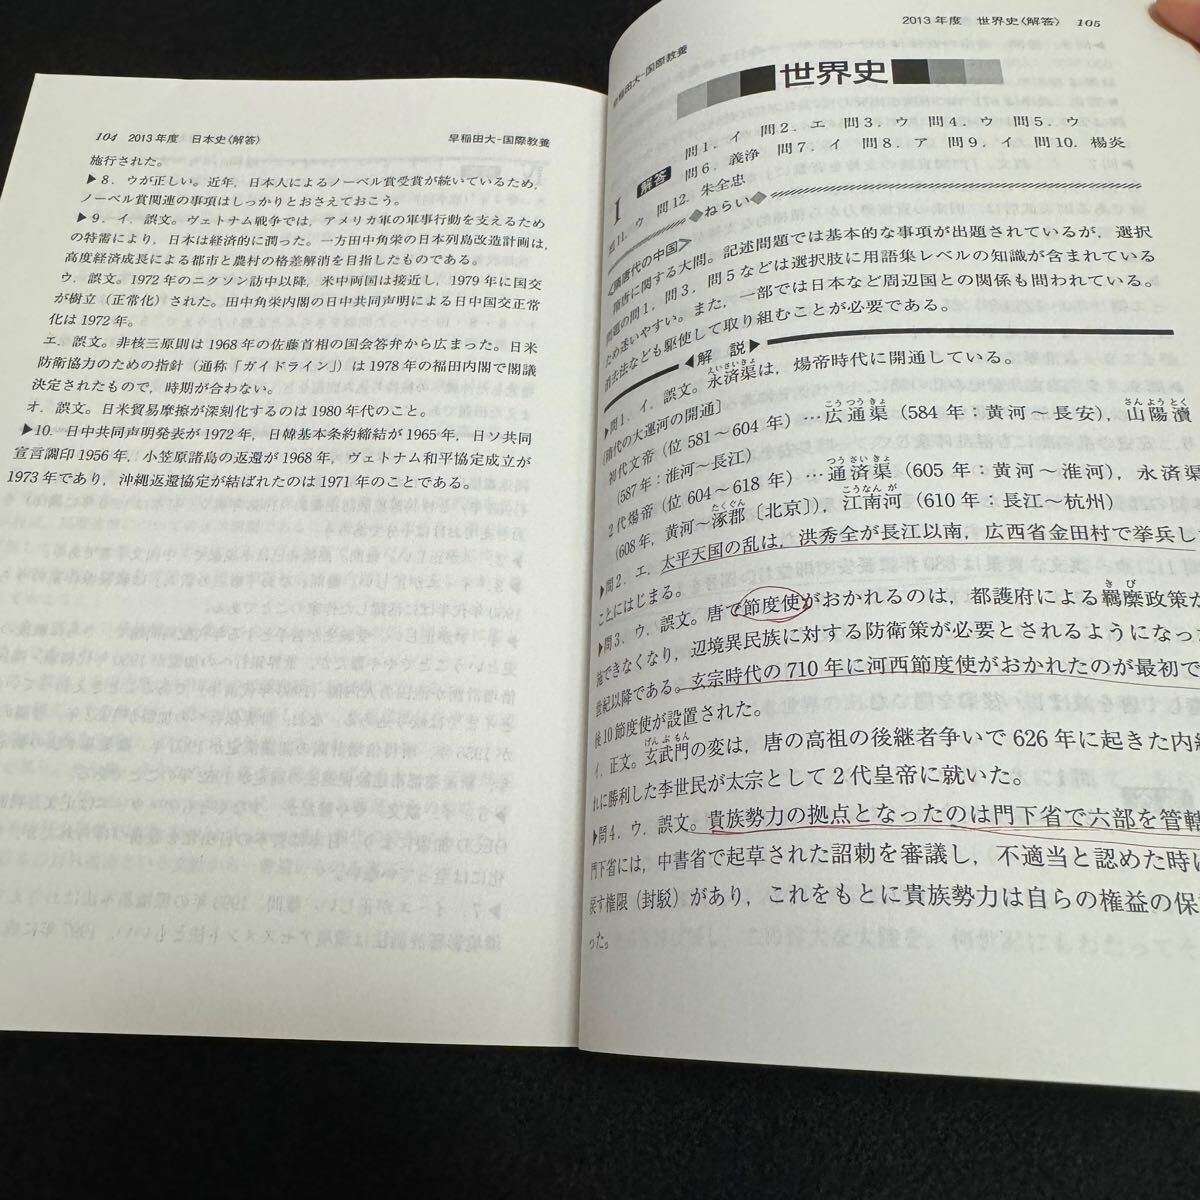 104 2013年度 日本史〈解答〉 早稲田大-国際教養
施行された。
▶8．ウが正しい。近年，日本人によるノーベル賞受賞が続いているため，
ノーベル賞関連の事項はしっかりとおさえておこう。
▶9．イ．誤文。ヴェトナム戦争では，アメリカ軍の軍事行動を支えるため
の特需により，日本は経済的に潤った。一方田中角栄の日本列島改造計画は，
高度経済成長による都市と農村の格差解消を目指したものである。
ウ．誤文。1972年のニクソン訪中以降，米中両国は接近し，1979年に国交
が樹立（正常化）された。田中角栄内閣の日中共同声明による日中国交正常
化は1972年。
エ．誤文。非核三原則は1968年の佐藤首相の国会答弁から広まった。日米
防衛協力のための指針（通称「ガイドライン」）は1978年の福田内閣で閣議
決定されたもので，時期が合わない。
オ．誤文。日米貿易摩擦が深刻化するのは1980年代のこと。
▶10．日中共同声明発表が1972年，日韓基本条約締結が1965年，日ソ共同
宣言調印1956年，小笠原諸島の返還が1968年，ヴェトナム和平協定成立が
1973年であり，沖縄返還協定が結ばれたのは1971年のことである。
2013年度 世界史〈解答〉 105
早稲田大-国際教養
世界史
I 解答 問1．イ 問2．エ 問3．ウ 問4．ウ 問5．ウ
問6．義浄 問7．イ 問8．ア 問9．イ 問10．楊炎
問11．ウ 問12．朱全忠
◆ねらい◆
＜隋唐代の中国＞
隋唐に関する大問。記述問題では基本的な事項が出題されているが，選択
問題の問1．問3．問5などは選択肢に用語集レベルの知識が含まれている
ため迷いやすい。また，一部では日本など周辺国との関係も問われている。
消去法なども駆使して取り組むことが必要である。
◀解 説▶
▶問1．イ．誤文。永済渠は，煬帝時代に開通している。
えいさいきょ
（隋代の大運河の開通）
初代文帝（位581～604年）…広通渠（584年：黄河～長安），山陽瀆
こうつうきょ さんようとく
（587年：淮河～長江）
2代煬帝（位604～618年）…通済渠（605年：黄河～淮河），永済渠
つうさいきょ
（608年，黄河～涿郡〔北京〕），江南河（610年：長江～杭州）
たくぐん こうなんが
▶問2．エ．太平天国の乱は，洪秀全が長江以南，広西省金田村で挙兵し
ことにはじまる。
▶問3．ウ．誤文。唐で節度使がおかれるのは，都護府による羈縻政策が
きび
施できなくなり，辺境異民族に対する防衛策が必要とされるようになった
世紀以降である。玄宗時代の710年に河西節度使がおかれたのが最初で
後10節度使が設置された。
イ．正文。玄武門の変は，唐の高祖の後継者争いで626年に起きた内
げんぶもん
れに勝利した李世民が太宗として2代皇帝に就いた。
▶問4．ウ．誤文。貴族勢力の拠点となったのは門下省で六部を管轄
門下省には，中書省で起草された詔勅を審議し，不適当と認めた時に
戻す権限（封駁）があり，これをもとに貴族勢力は自らの権益の保
った。